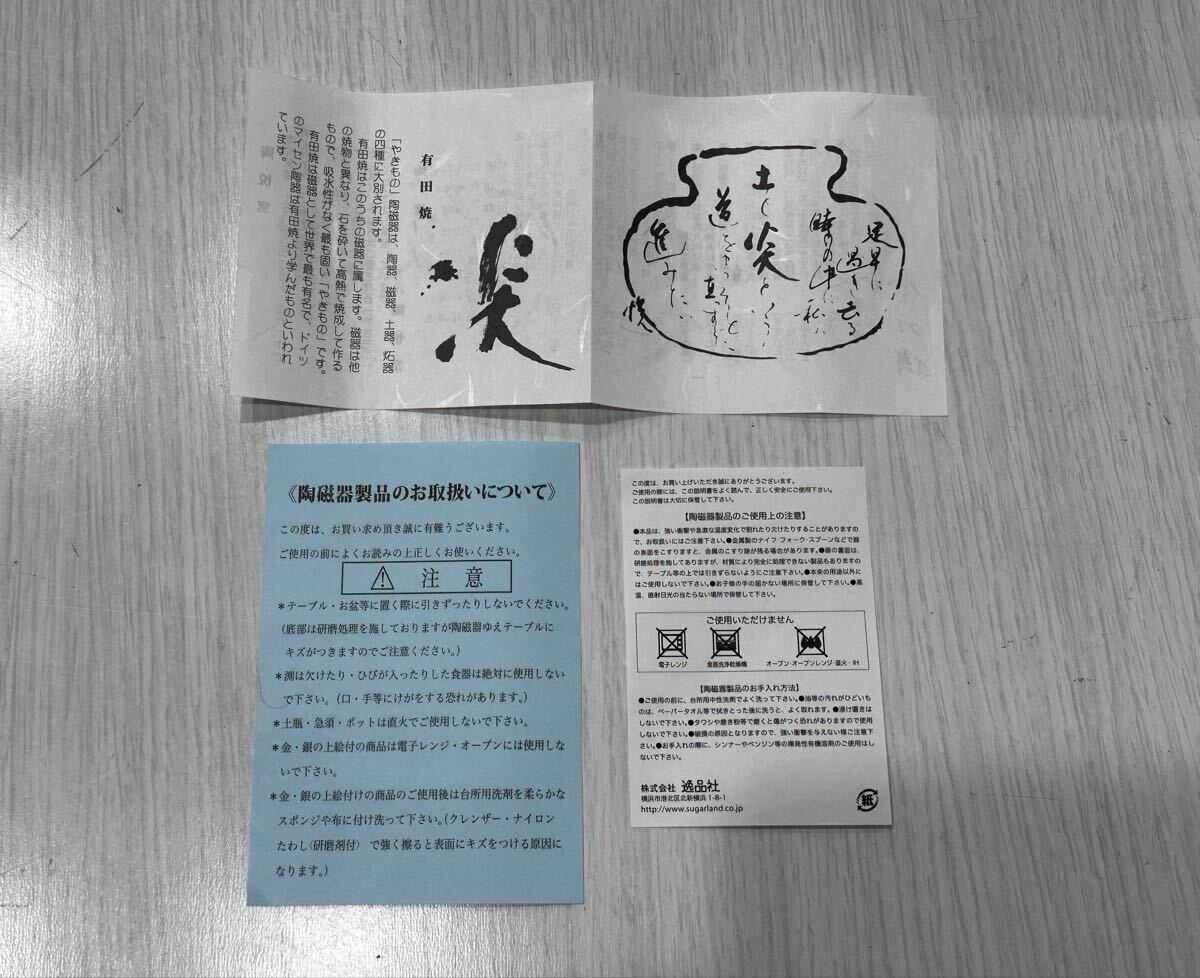 有田焼
炎
「やきもの」陶磁器は、陶器、磁器、土器、炻器
の四種に大別されます。
有田焼はこのうちの磁器に属します。磁器は他
の焼物と異なり、石を砕いて高熱で焼成して作る
もので、吸水性がなく最も固い「やきもの」です。
有田焼は磁器として世界で最も有名で、ドイツ
のマイセン陶器は有田焼より学んだものといわれ
ています。
足早に
過ぎ去る
時の中に私は
土と炎と
道を
真
進みたい
《陶磁器製品のお取扱いについて》
この度は、お買い求め頂き誠に有難うございます。
ご使用の前によくお読みの上正しくお使いください。
注意
*テーブル・お盆等に置く際に引きずったりしないでください。
(底部は研磨処理を施しておりますが陶磁器ゆえテーブルに
キズがつきますのでご注意ください。)
*渕は欠けたり・ひびが入ったりした食器は絶対に使用しない
で下さい。(口・手等にけがをする恐れがあります。)
*土瓶・急須・ポットは直火でご使用しないで下さい。
*金・銀の上絵付の商品は電子レンジ・オーブンには使用しな
いで下さい。
*金・銀の上絵付けの商品のご使用後は台所用洗剤を柔らかな
スポンジや布に付け洗って下さい。(クレンザー・ナイロン
たわし〈研磨剤付〉 で強く擦ると表面にキズをつける原因に
なります。)
この度は、お買い上げいただき誠にありがとうございます。
ご使用の際には、この説明書をよく読んで、正しく安全にご使用下さい。
この説明書は大切に保管して下さい。
【陶磁器製品のご使用上の注意】
●本品は、強い衝撃や急激な温度変化で割れたり欠けたりすることがありますの
で、お取扱いにはご注意下さい。●金属製のナイフ・フォーク・スプーンなどで器
の表面をこすりますと、金属のこすり跡が残る場合があります。●器の裏面は、
研磨処理を施してありますが、材質により完全に処理できない製品もありますの
で、テーブル等の上では引きずらないようにご注意下さい。●本来の用途以外に
はご使用しないで下さい。●お子様の手の届かない場所に保管して下さい。●高
温、直射日光の当たらない場所で保管して下さい。
ご使用いただけません
電子レンジ
食器洗浄乾燥機
オーブン・オーブンレンジ・直火・IH
【陶磁器製品のお手入れ方法】
●ご使用の前に、台所用中性洗剤でよく洗って下さい。●油等の汚れがひどいも
のは、ペーパータオル等で拭きとった後に洗うと、よく取れます。●浸け置きは
しないで下さい。●タワシや磨き粉等で磨くと傷がつく恐れがありますので使用
しないで下さい。●破損の原因となりますので、強い衝撃を与えない様ご注意下
さい。●お手入れの際に、シンナーやベンジン等の揮発性有機溶剤のご使用はし
ないで下さい。
株式会社 逸品社
横浜市港北区北新横浜 1-8-1
http://www.sugarland.co.jp
紙